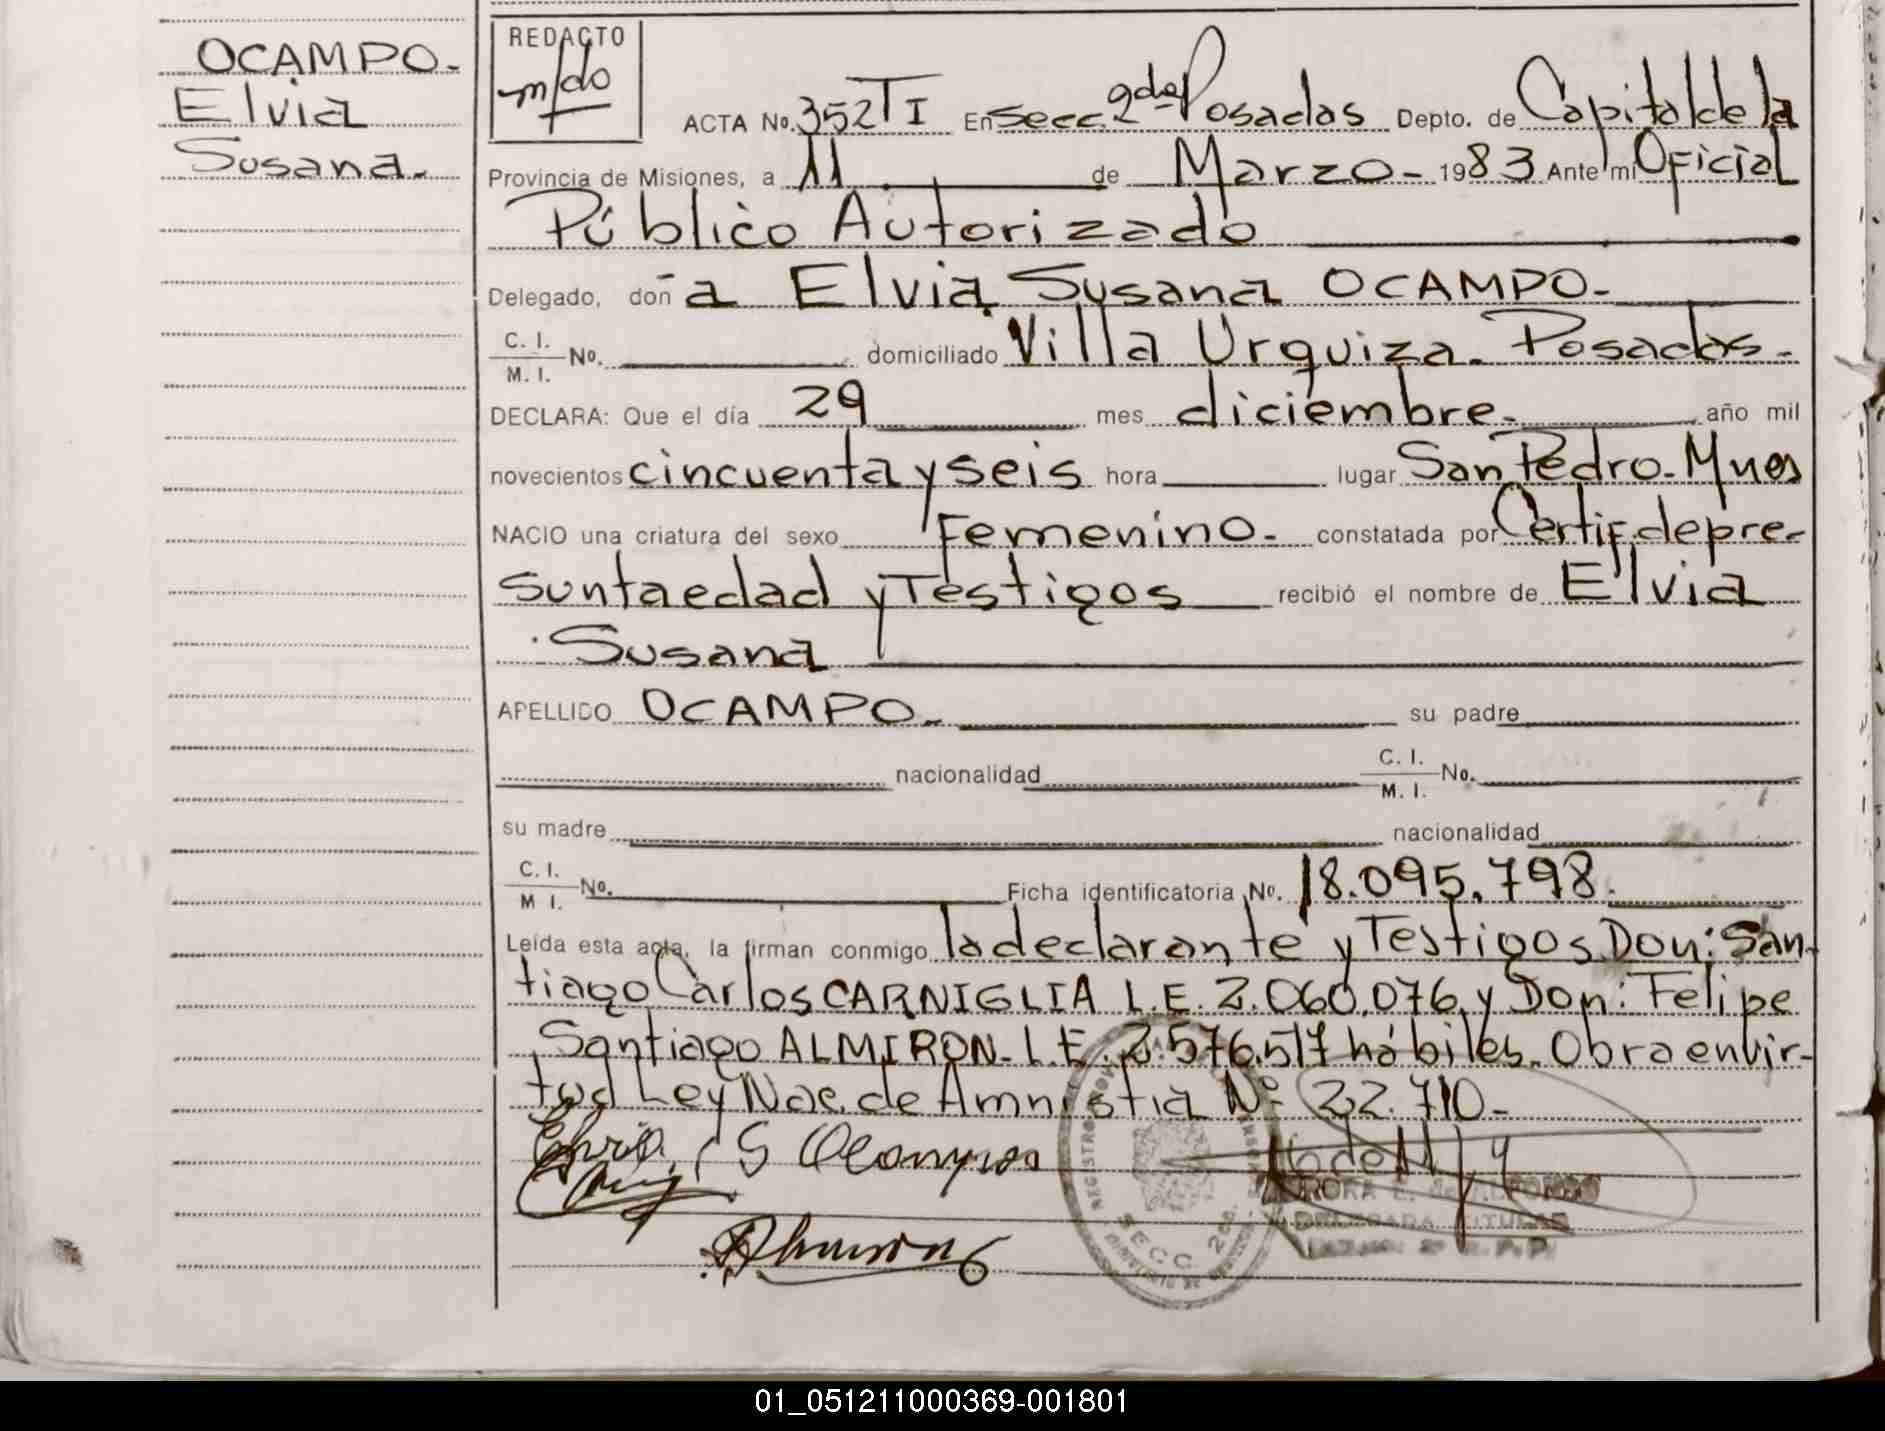 OCAMPO.
Elvia
Susana.
REDACTO
m/do
ACTA No. 352 T I En Secc. 2da Posadas Depto. de Capital de la
Provincia de Misiones, a 11 de Marzo - 1983 Ante mi Oficial
Público Autorizado
Delegado, don a Elvia Susana OCAMPO-
C. I.
M. I. No. domiciliado Villa Urquiza. Posadas.
DECLARA: Que el día 29 mes diciembre. año mil
novecientos cincuenta y seis hora lugar San Pedro. Mnes
NACIO una criatura del sexo Femenino. constatada por Certif. de pre-
sunta edad y Testigos recibió el nombre de Elvia
Susana
APELLIDO OCAMPO. su padre
nacionalidad C. I.
M. I. No.
su madre nacionalidad
C. I.
M I. No. Ficha identificatoria No. 18.095.798.
Leída esta acta, la firman conmigo la declarante y Testigos Don: San-
tiago Carlos CARNIGLIA L.E. 2.060.076 y Don: Felipe
Santiago ALMIRON- L.E. 2.576.517 hábiles. Obra en vir-
tud Ley Nac. de Amnistia Nº 22.710-
Elvia S Ocampo
REGISTRO
SECC. 2da.
DELEGADA TITULAR
01_051211000369-001801